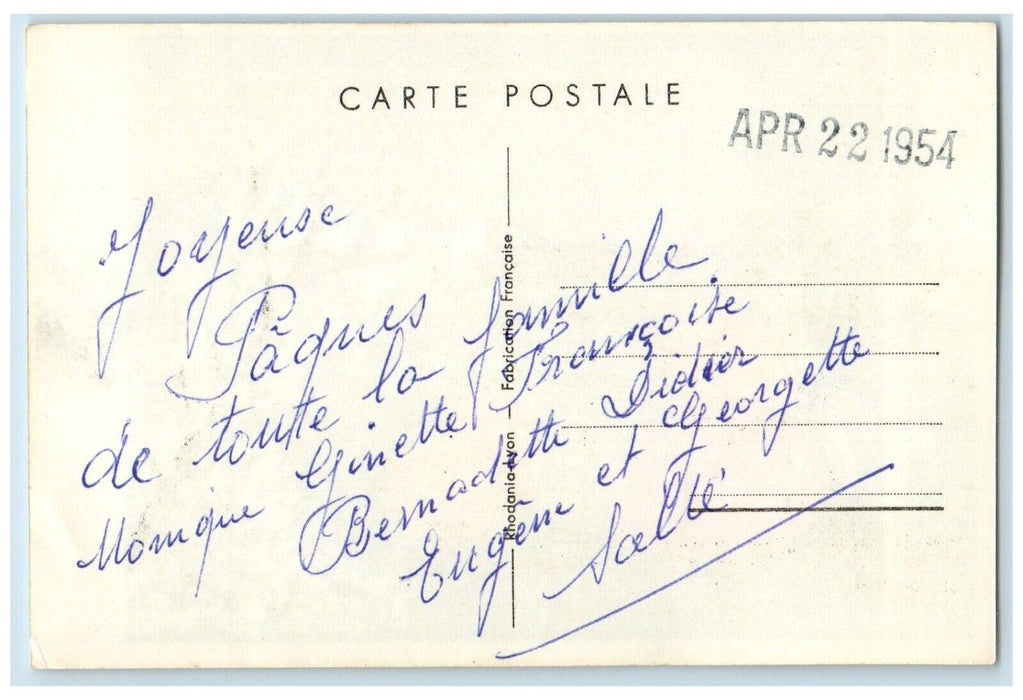 CARTE POSTALE
APR 22 1954
Joyeuse
Pâques
de toute la famille
Monique Ginette Françoise
Bernadette Didier
Eugène et Georgette
Rhodania-Lyon — Fabrication Française